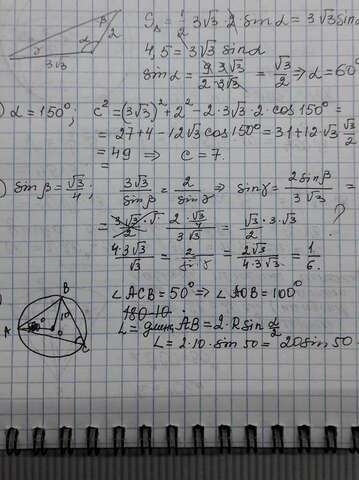 β
α
γ
2
3√3
S△ = 1/2 · 3√3 · 2 · sin α = 3√3 sin α
4,5 = 3√3 sin α
sin α = 9·3√3 / 2·3√3 = √3/2 ⇒ α = 60°
) α = 150°; c² = (3√3)² + 2² − 2·3√3·2·cos 150° =
= 27+4 − 12√3 cos 150° = 31+12·√3 √3/2
= 49 ⇒ c = 7.
) sin β = √3/4; 3√3/sin β = 2/sin γ ⇒ sin γ = 2 sin β / 3√3 =
= 2·√3/4 / 3√3 = √3·3·√3 / 2 ?
4·3√3/√3 = 2/sin γ = 2√3/4·3√3 = 1/6.
) ∠ACB = 50° ⇒ ∠AOB = 100°
180-10
L = длина AB = 2·R sin α/2
L = 2·10·sin 50 = 20 sin 50
A
B
C
10
o